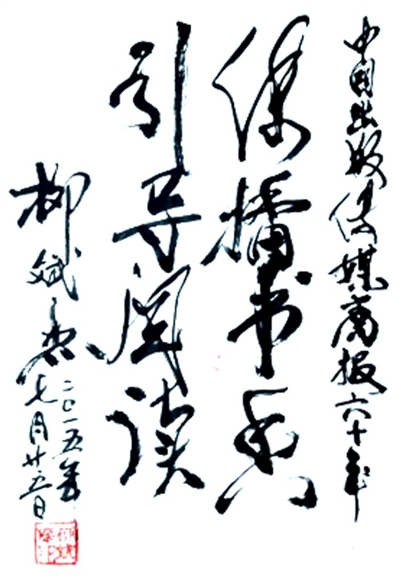 中国出版传媒商报六十年
传播书香
引导阅读
柳斌杰
二〇一五年
七月廿五日